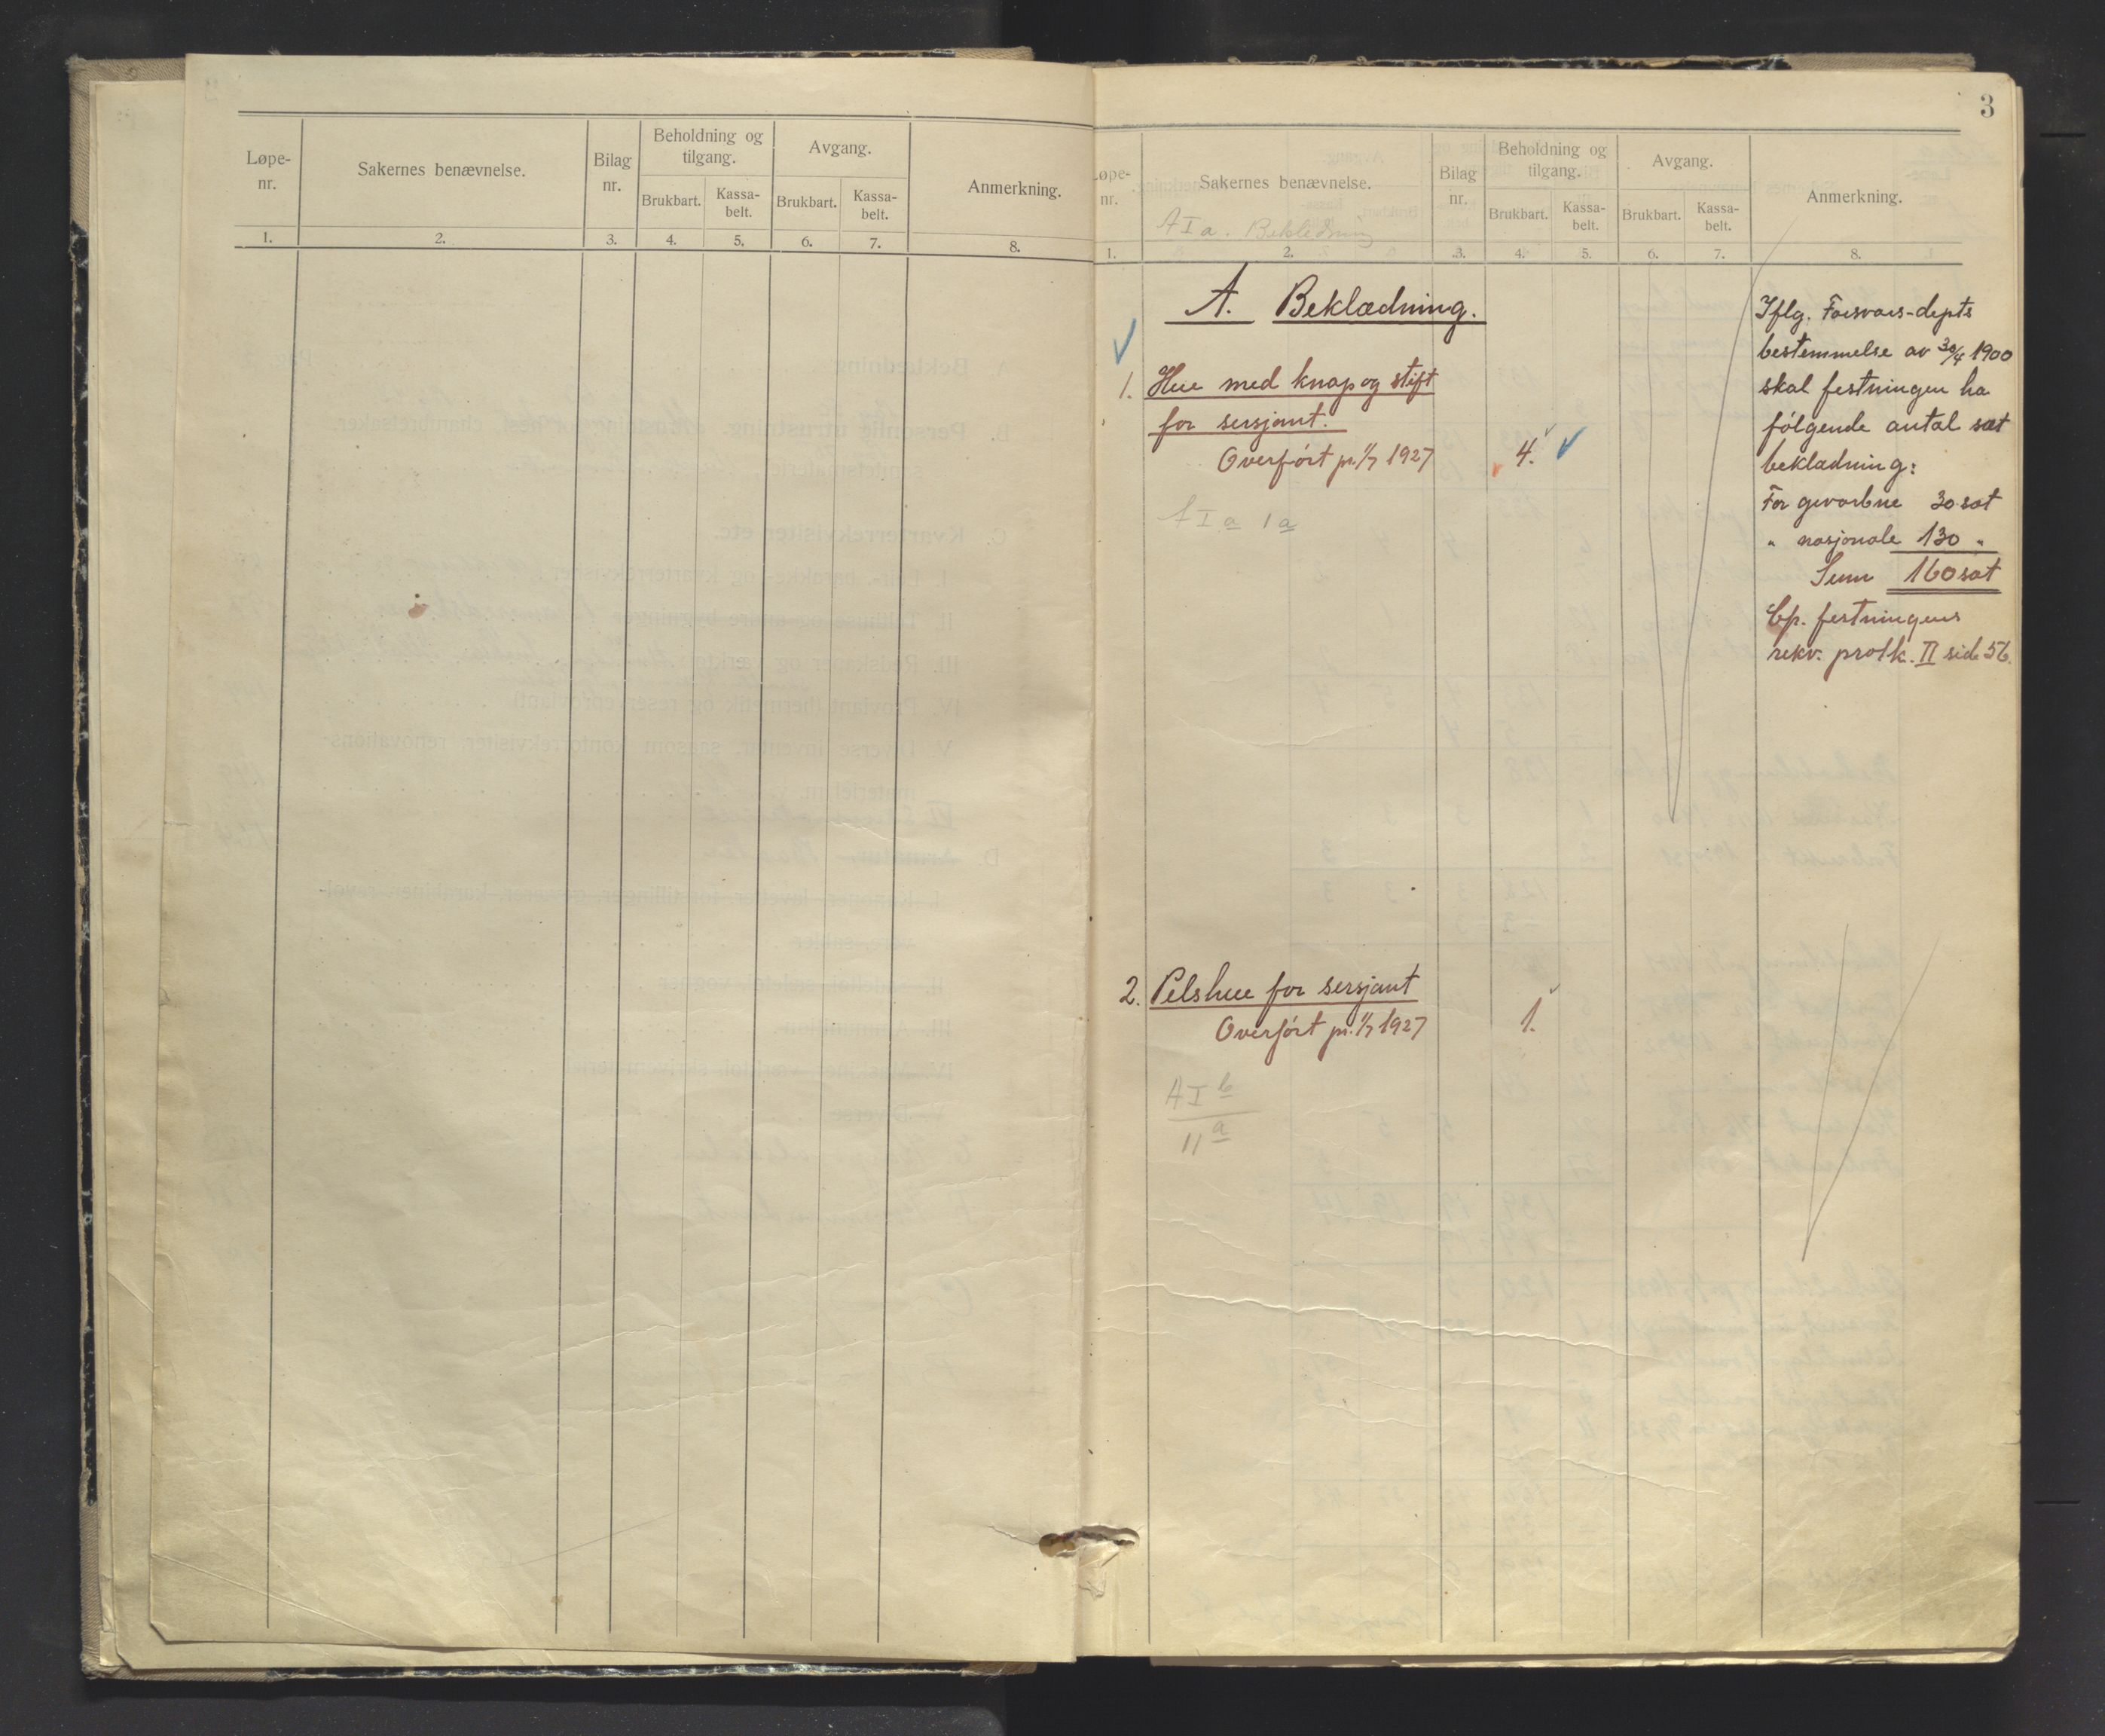 Løpe-
nr.
Sakernes benævnelse.
Bilag
nr.
Beholdning og
tilgang.
Avgang.
Anmerkning.
Brukbart.
Kassa-
belt.
Brukbart.
Kassa-
belt.
1. 2. 3. 4. 5. 6. 7. 8.
3
Løpe-
nr.
Sakernes benævnelse.
Bilag
nr.
Beholdning og
tilgang.
Avgang.
Anmerkning.
Brukbart.
Kassa-
belt.
Brukbart.
Kassa-
belt.
A I a. Bekledning
1. 2. 3. 4. 5. 6. 7. 8.
A. Beklædning.
1. Hue med knap og stift
for sersjant.
Overført pr. 1/7 1927 4.
A I a 1a
2. Pelshue for sersjant
Overført pr. 1/7 1927 1.
A I b
11 a
Iflg. Forsvars-depts
bestemmelse av 30/4 1900
skal festningen ha
følgende antal sæt
beklædning:
For gevorbne 30 sæt
" nasjonale 130 "
Sum 160 sæt
Cp. festningens
rekv. protk. II side 56.